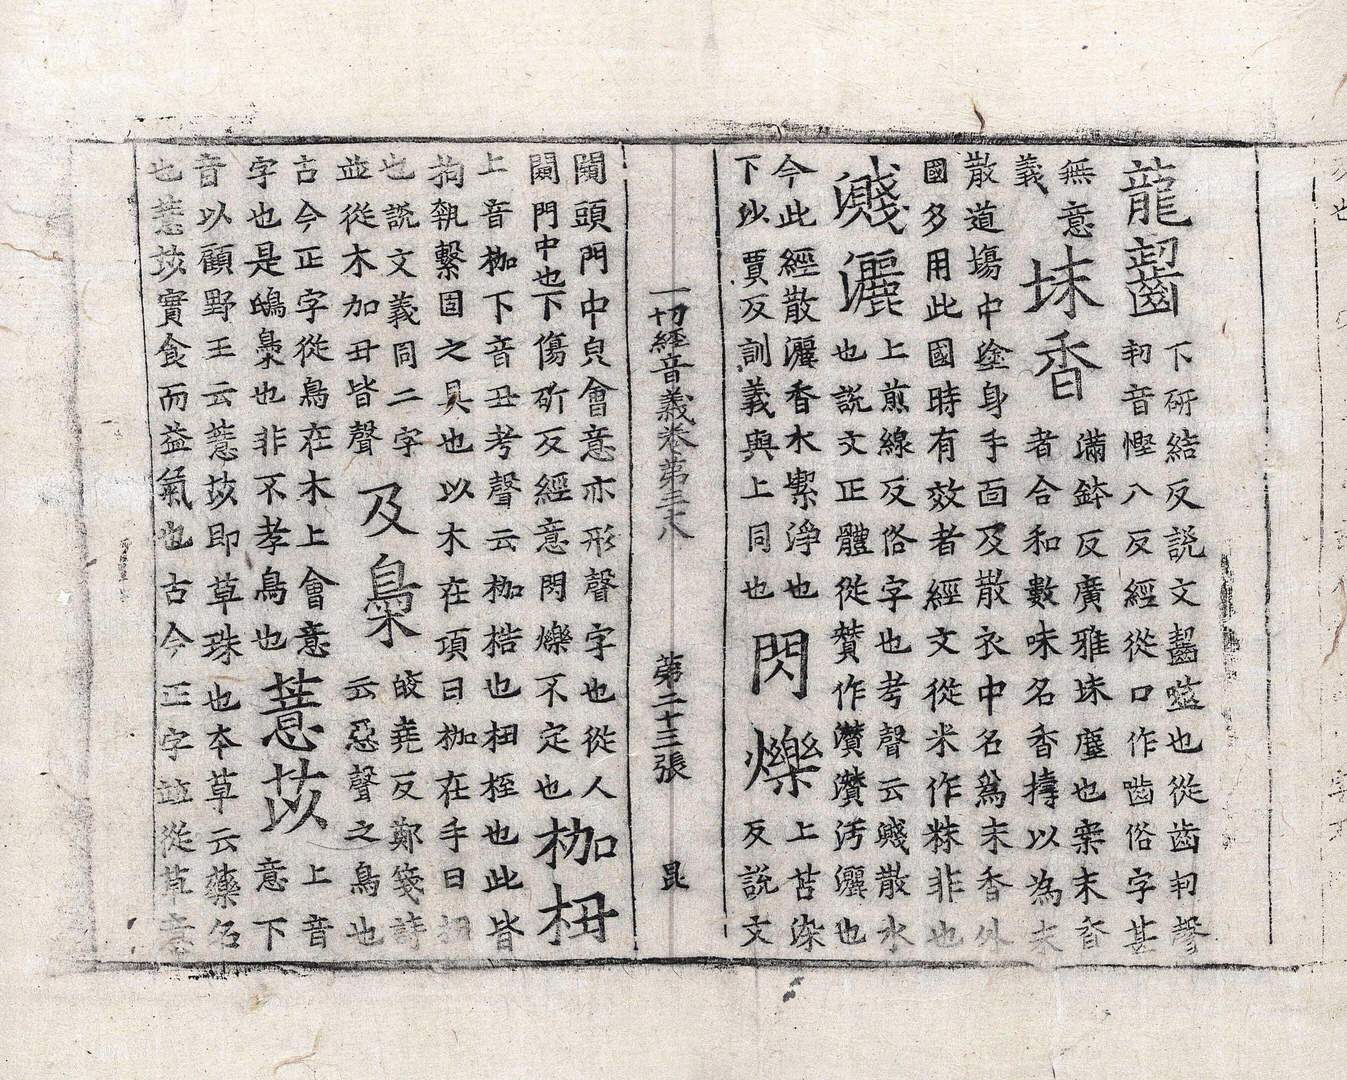 龍齧
下研結反說文齧噬也從齒㓞聲
㓞音慳八反經從口作嚙俗字甚
無意
義
抹香
滿鉢反廣雅抹塵也案末香
者合和數味名香擣以為末
散道場中塗身手面及散衣中名為末香外
國多用此國時有效者經文從米作粖非也
濺灑
上煎線反俗字也考聲云濺散水
也說文正體從贊作灒灒汚灑也
今此經散灑香水㓗淨也
下沙賈反訓義與上同也
閃爍
上苫染
反說文
一切經音義卷第三十八 第二十三張 昆
闚頭門中皃會意亦形聲字也從人
闚門中也下傷斫反經意閃爍不定也
枷杻
上音枷下音丑考聲云枷梏也杻桎也此皆
拘執繫固之具也以木在項曰枷在手曰杻
也說文義同二字
並從木加丑皆聲
及梟
皎堯反鄭箋詩
云惡聲之鳥也
古今正字從鳥在木上會意
字也是鴟梟也非不孝鳥也
薏苡
上音
意下
音以顧野王云薏苡即草珠也本草云藥名
也薏苡實食而益氣也古今正字並從草意